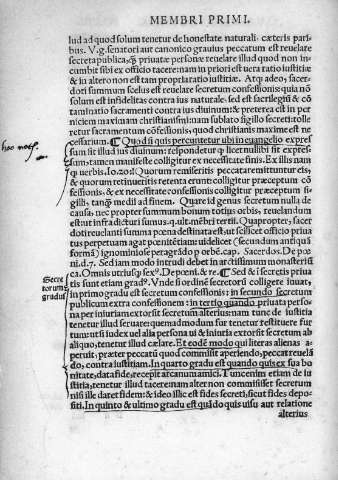 MEMBRI PRIMI.
lud ad quod solum tenetur de honestate naturali. cæteris pari
bus. V.g. senatori aut canonico grauius peccatum est reuelare
secreta publica, q̃ priuatæ personæ reuelare illud quod non in
cumbit sibi ex officio tacere: nam in priori est uera ratio iustitiæ
& in altero non est tam propria ratio iustitiæ. Atq; adeo, sacer-
doti summum scelus est reuelare secretum confessionis: quia nõ
solum est infidelitas contra ius naturale. sed est sacrilegiũ & cõ
taminatio sacramenti contra ius diuinum: & præterea est in per
niciem maximam christianismi: nam sublato sigillo secreti: tolle
retur sacramentum cõfessionis, quod christianis maxime est ne
cessarium. ¶ Quod si quis percunctetur ubi in euangelio expres
sum sit illud ius diuinum: respondetur q licet nõ sit expres-
sum, tamen manifeste colligitur ex necessitate finis. Ex illis nam
q uerbis. Io.20: Quorum remiseritis peccata remittuntur eis,
& quorum retinueritis retenta erunt: colligitur præceptum cõ
fessionis, & ex necessitate confessionis colligitur præceptum si-
gilli, tanq̃ medii ad finem. Quare id genus secretum nulla de
causa, nec propter summum bonum totius orbis, reuelandum
est: ut infra dicturi sumus. q. ult. mẽbri tertii. Quapropter, sacer
doti reuelanti summa pœna destinata est: ut scilicet officio priua
tus perpetuam agat pœnitẽtiam: uidelicet (secundum antiquã
formã) ignominiose peragrãdo orbẽ. cap. Sacerdos. De pœ
ni. d.7. Sed iam modo intrudi debet in arctissimum monasteriũ
ca. Omnis utriusq; sexꝰ. De pœni. & re. ¶ Sed & i secretis priua
tis sunt etiam gradꝰ. Vnde si ordinẽ secretorũ colligere iuuat,
in primo gradu est secretum confessionis: in secundo secretum
publicum extra confessionem: in tertio quando priuata perso-
na per iniuriam extorsit secretum alterius: nam tunc de iustitia
tenetur illud seruare: quemadmodum fur tenetur restituere fur
tum: ut si iudex uel alia persona ui & iniuria extorsit secretum ab
aliquo, tenetur illud cælare. Et eodẽ modo qui literas alienas a
peruit: præter peccatũ quod commisit aperiendo, peccat reuelã
do, contra iustitiam. In quarto gradu est quando quis ex sua bo
nitate, data fide, recepit arcanum amici. Tunc enim etiam de iu
stitia, tenetur illud tacere: nam alter non commisisset secretum
nisi ille daret fidem: & ideo illic est fides secreti, sicut fides depo-
siti. In quinto & ultimo gradu est quãdo quis uisu aut relatione
alterius
Secre
torum
gradus